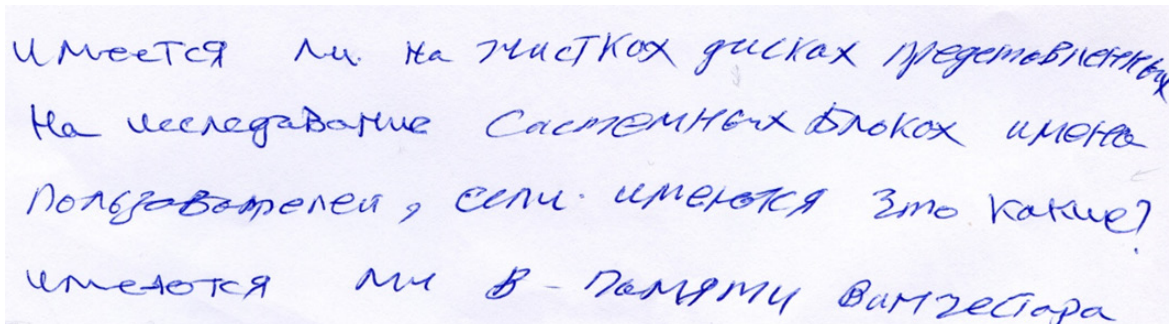 имеется ли на жистких дисках предствленных
на исследавание Састемных блоках имена
пользователей, если имеются Это какие?
имеются ли в - памяти винчестора